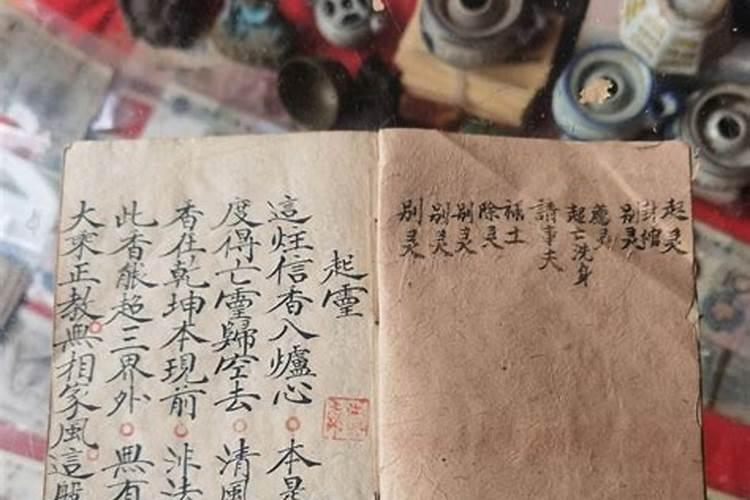 起灵
封棺
别灵
起亡洗身
請事夫
禓土
除灵
别灵
别灵
别灵
起靈
這炷信香入爐心 本是
度得亡靈歸空去 清風
香在乾坤本現前 非法
此香能超三界外 無有
大乘正教無相家風這